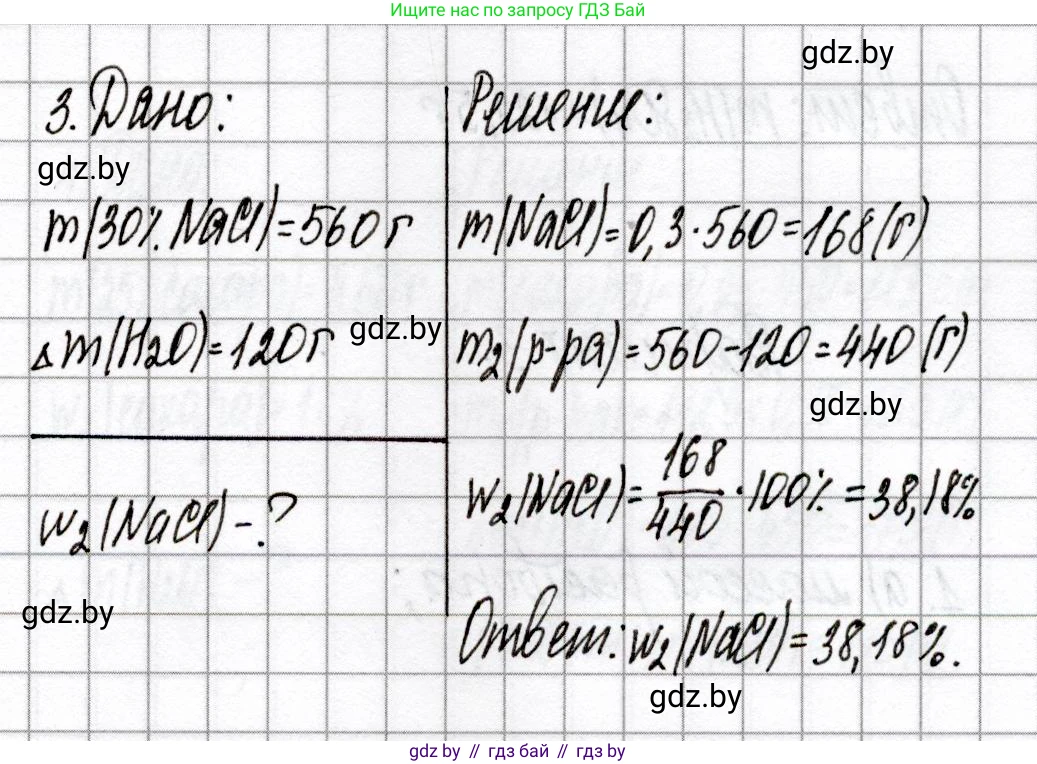 Ищите нас по запросу ГДЗ Бай
gdz.by
3. Дано:
gdz.by
m(30% NaCl)=560 г
Δm(H₂O)=120 г
gdz.by
w₂(NaCl)-?
gdz.by
Решение:
m(NaCl)=0,3·560=168(г)
m₂(р-ра)=560-120=440(г)
gdz.by
w₂(NaCl)=168/440·100%=38,18%
Ответ: w₂(NaCl)=38,18%.
gdz.by
gdz.by // гдз бай // гдз by